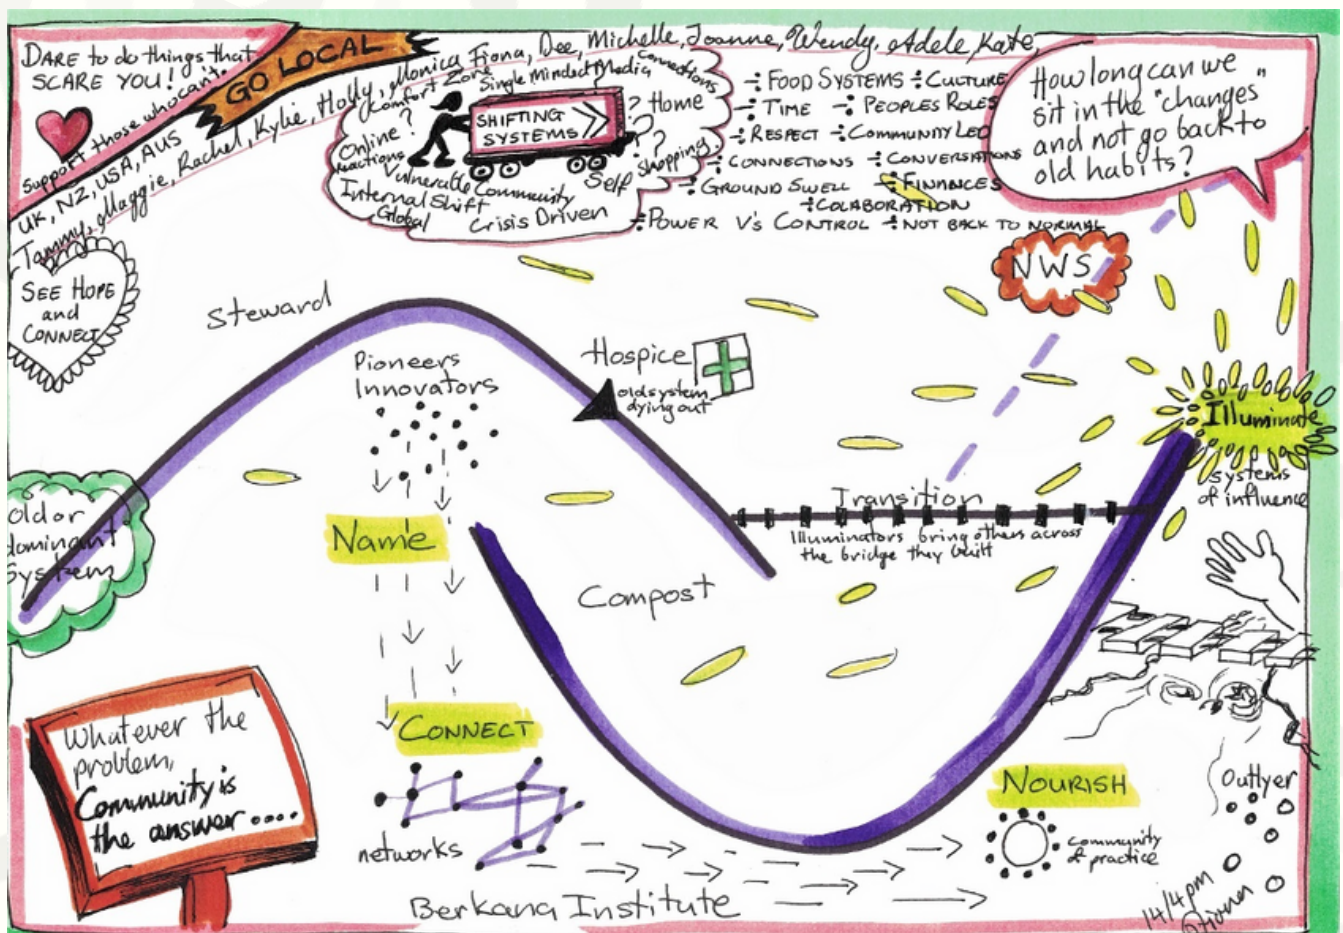 DARE to do things that
SCARE YOU!
Support those who can't.
GO LOCAL
UK, NZ, USA, AUS
Tammy, Maggie, Rachel, Kylie, Holly, Monica, Fiona, Dee, Michelle, Joanne, Wendy, Adele, Kate,
SEE HOPE
and
CONNECT
Comfort Zone
Single Minded
Media
Connections
Online?
reactions
SHIFTING
SYSTEMS
? Home
?
?
Shopping
Vulnerable Community
Self
Internal Shift
Global
Crisis Driven
÷ FOOD SYSTEMS ÷ CULTURE
÷ TIME ÷ PEOPLES ROLES
÷ RESPECT ÷ COMMUNITY LED
÷ CONNECTIONS ÷ CONVERSATIONS
÷ GROUND SWELL ÷ FINANCES
÷ COLABORATION
÷ POWER V's CONTROL ÷ NOT BACK TO NORMAL
How long can we
sit in the "changes"
and not go back to
old habits?
NWS
Steward
Pioneers
Innovators
Hospice
old system
dying out
old or
dominant
System
Name
Transition
Illuminators bring others across
the bridge they built
Illuminate
systems
of influence
Compost
Whatever the
problem,
Community is
the answer....
CONNECT
networks
NOURISH
community
of practice
Outlyer
Berkana Institute
14/4pm
@fiona